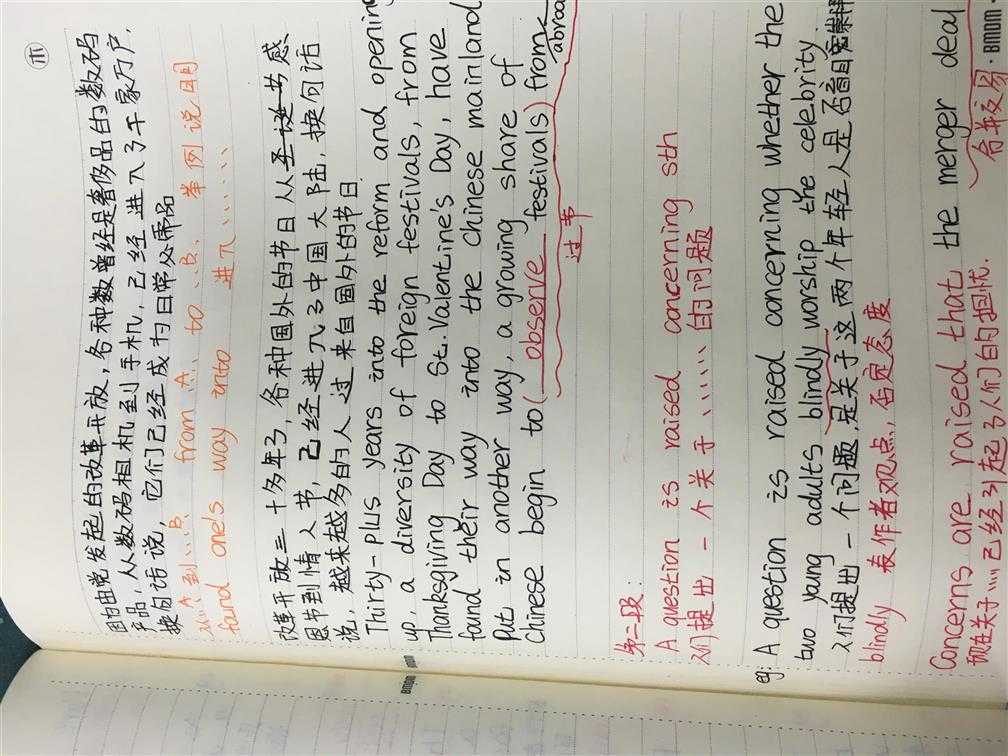 因由由晚发起的改革开放，各种数曾经是奢侈品的数码
产品，从数码相机到手机，已经进入了千家万户.
换句话说，它们已经成为日常必需品
从A到B. from A to B. 举例说明
found one's way into 进入......
改革开放三十多年了，各种国外的节日从圣诞节感
恩节到情人节，已经进入了中国大陆，换句话
说，越来越多的人过来自国外的节日.
Thirty-plus years into the reform and opening
up, a diversity of foreign festivals, from
Thanksgiving Day to St. Valentine's Day, have
found their way into the Chinese mainland
Put in another way, a growing share of
Chinese begin to (observe festivals) from
abroad
过节
第二段:
A question is raised concerning sth
人们提出一个关于......的问题
eg: A question is raised concerning whether the
two young adults blindly worship the celebrity
人们提出一个问题，是关于这两个年轻人是否盲目崇拜
blindly 表作者观点，否定态度
Concerns are raised that the merger deal
合并交易
现在关于......已经引起了人们的担忧.
BMDDM